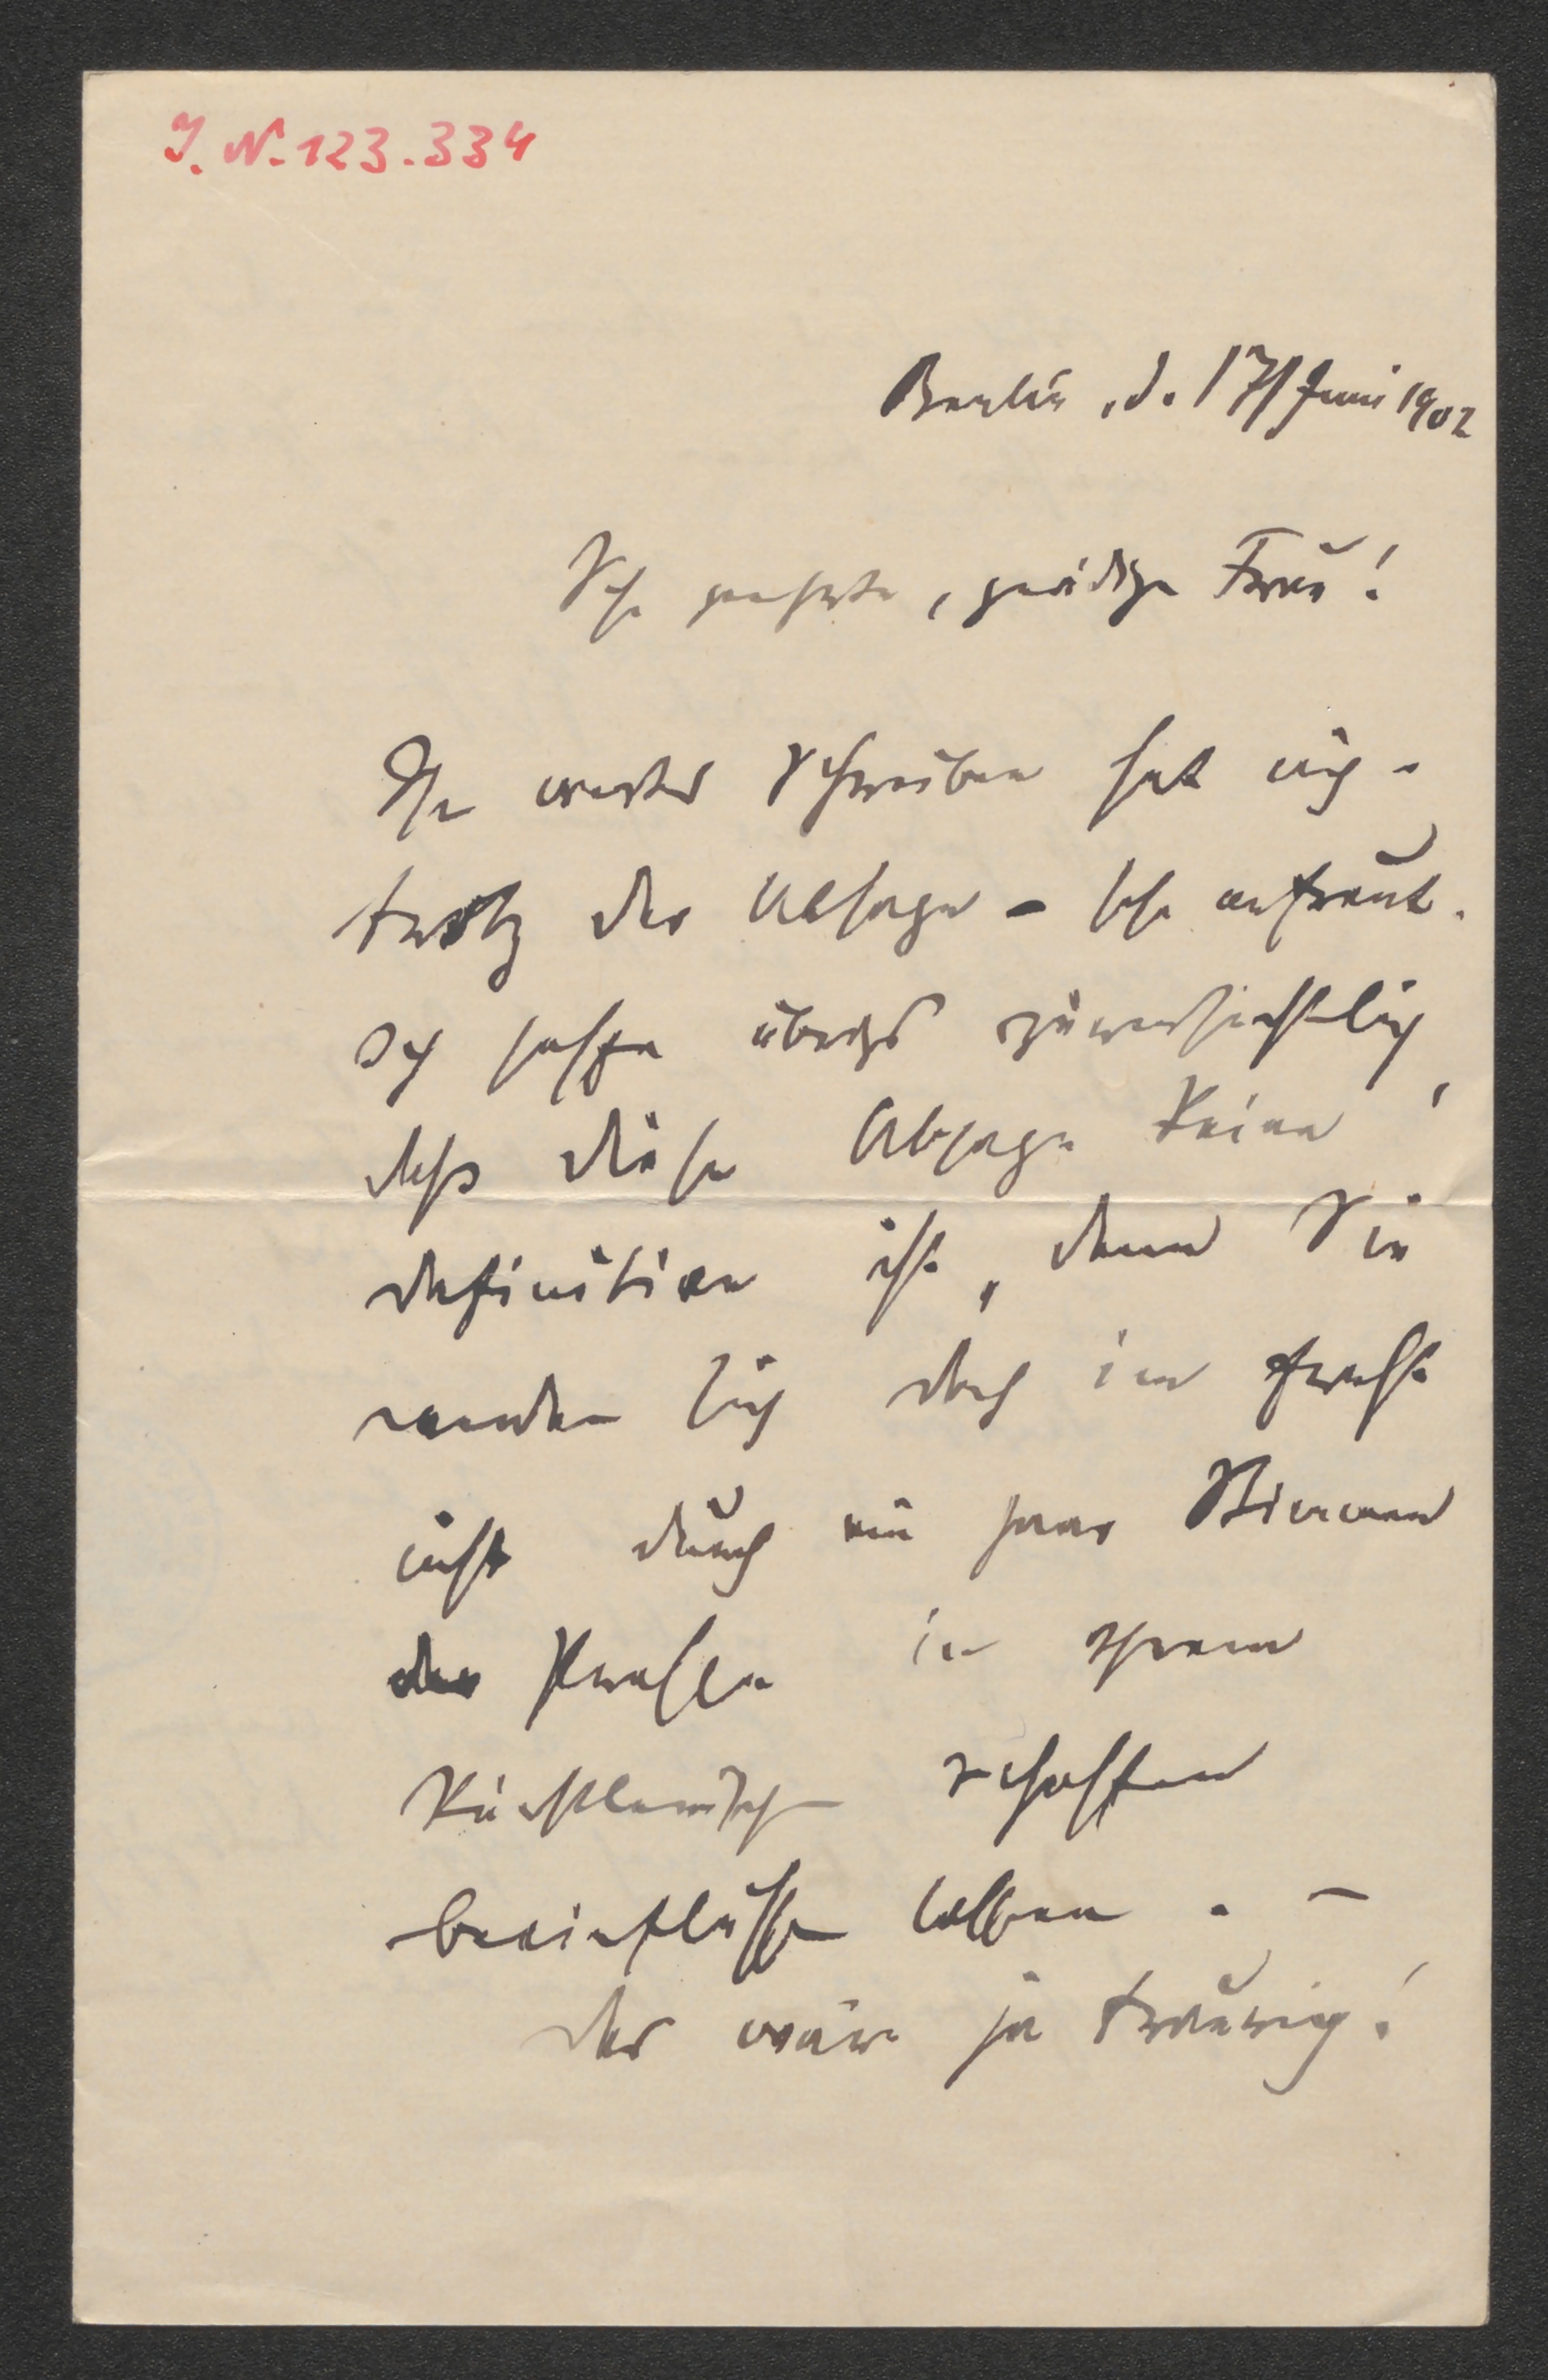 I. N. 123.334
Berlin, d. 17/Juni 1902
Sehr geehrte, gnädige Frau!
Ihr wertes Schreiben hat mich -
trotz der Absage - sehr erfreut.
Ich hoffe übrigs zuversichtlich,
daß diese Absage keine
definitive ist, denn Sie
werden sich doch im Ernste
nicht durch ein paar Stimmen
der Presse in Ihrem
künstlerischen Schaffen
beeinflussen lassen. -
das wäre ja traurig!